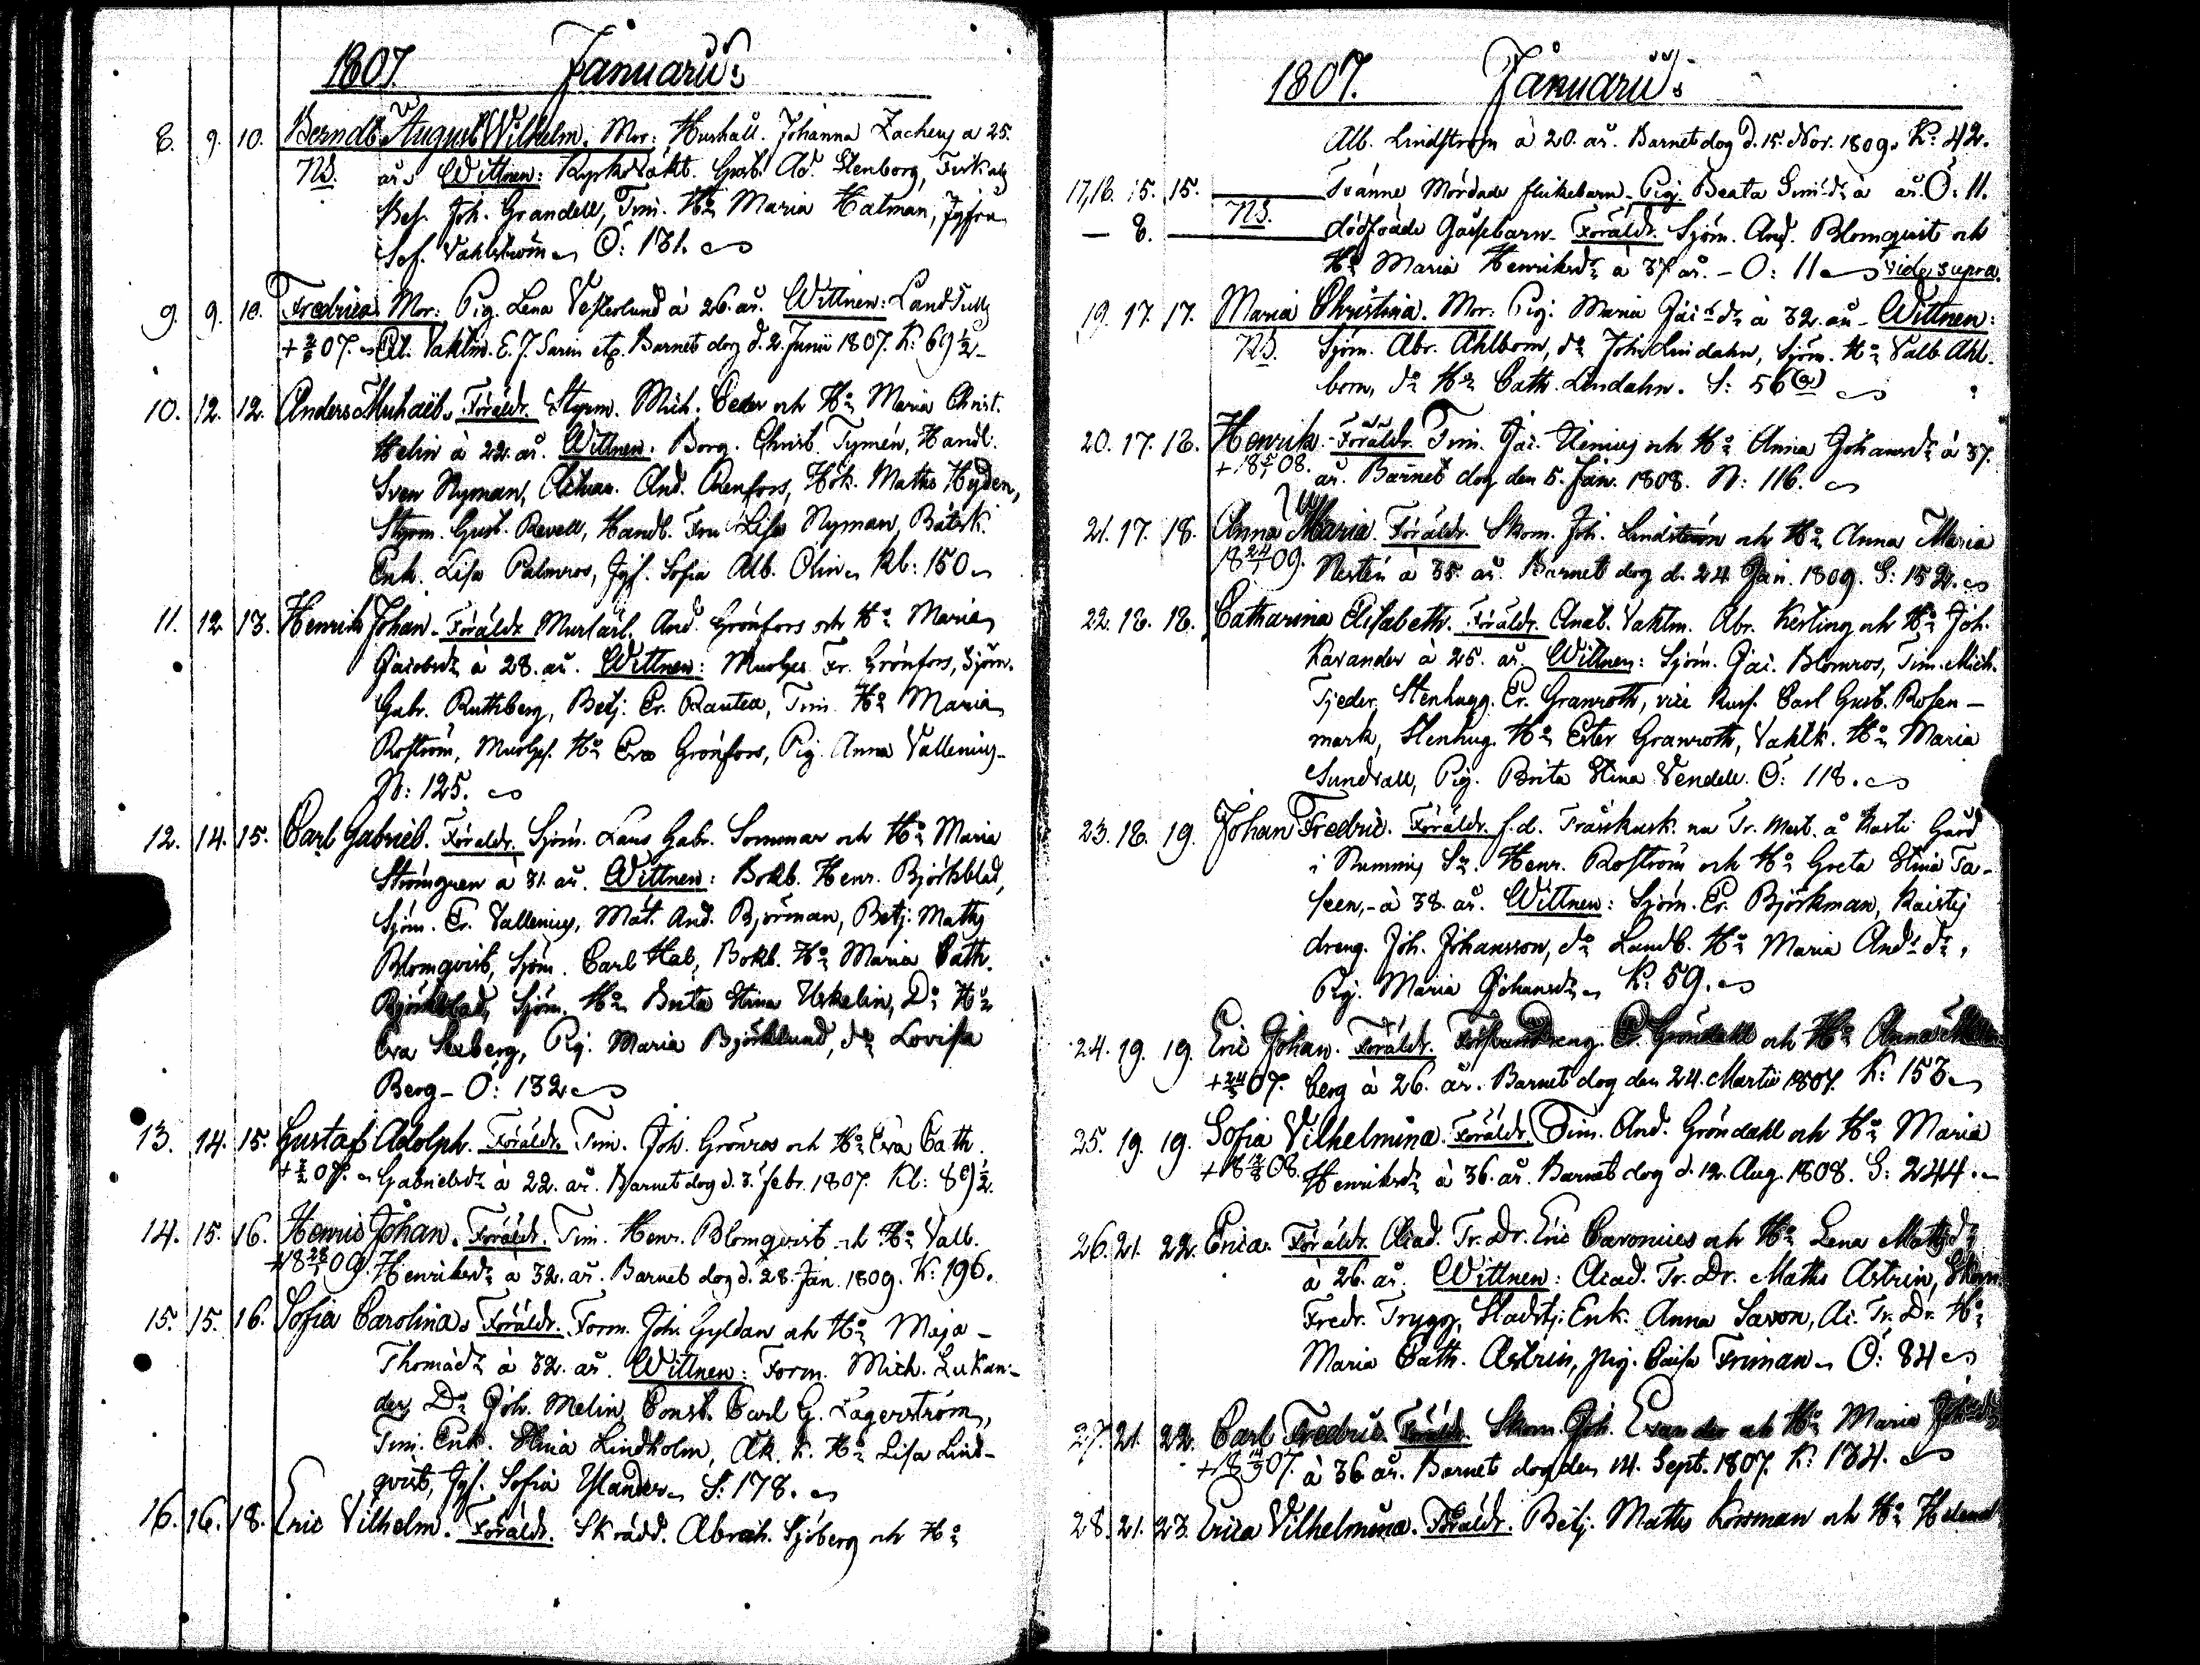 1807. Januarii:
8. 9. 10. Berndt August Wilhelm. Mor: Hushåll. Johanna Zacheus a 25.
NB. år. Wittnen: Kyrkvakt. Gust. Ad. Stenborg, Fisk
Bes. Joh. Grandell, Tim. H:u Maria Hatman, Jgfru
Sof. Vahlström Ö: 131.
9. 9. 10. Fredrica Mor: Pig. Lena Vesterlund à 26. år. Wittnen: LandTull
+ 2/6 07. Vaktm. E. J. Sarin etc. Barnet dog d. 2. Junii 1807. K: 69 1/2
10. 12. 12. Anders Michael. Föräldr. Styrm. Mich. Ceder och H:u Maria Christ.
Helin à 22. år. Wittnen. Borg. Christ. Tymén, Handl.
Sven Nyman, And. Arenfors, Hök. Maths Hyden,
Styrm. Gust. Revell, Handl. Fru Lisa Nyman, Båtsk.
Enk. Lisa Palmros, Jgf. Sofia Alb. Olin Kl: 150
11. 12. 13. Henrik Johan. Föräldr. Murlärl. And. Grönfors och H:u Maria
Jacobsdr à 28. år. Wittnen: Murges. Fr. Grönfors, Sjöm.
Gabr. Ruthberg, Betj. Er. Rautea, Tim. H:u Maria
Roström, Murges. H:u Eva Grönfors, Pig. Anna Vallenius
N: 125.
12. 14. 15. Carl Gabriel. Föräldr. Sjöm. Lars Gabr. Sommar och H:u Maria
Strömgren à 31. år. Wittnen: Bokb. Henr. Björkblad,
Sjöm. Er. Vallenius, Mat. And. Björman, Betj. Maths
Blomqvist, Sjöm. Carl Hal, Bokb. H:u Maria Cath.
Björkblad, Sjöm. H:u Brita Stina Uskelin, D:o H:u
Eva Seeberg, Pig. Maria Björklund, d:o Lovisa
Berg - Ö: 132
13. 14. 15. Gustaf Adolph. Föräldr. Tim. Joh. Grönros och H:u Eva Cath.
+ 3/2 07. Gabrielsdr à 22. år. Barnet dog d. 3. febr. 1807. Kl: 89 1/2.
14. 15. 16. Henric Johan. Föräldr. Tim. Henr. Blomqvist och H:u Valb.
+18 28/1 09. Henriksdr à 32. år. Barnet dog d. 28. Jan. 1809. K: 196.
15. 15. 16. Sofia Carolina. Föräldr. Form. Joh. Gyldan och H:u Maja
Thomadr à 32. år. Wittnen: Form. Mich. Lukan-
der, D:o Joh. Melin, Const. Carl G. Lagerström,
Tim. Enk. Stina Lindholm, Ak. k. H:u Lisa Lind-
qvist, Jgf. Sofia Ylander S: 178.
16. 16. 18. Eric Vilhelm. Föräldr. Skrädd. Abrah. Sjöberg och H:u
1807. Januarii:
Alb. Lindström à 20. år. Barnet dog d. 15. Nov. 1809. K: 42.
17, 18. 15. 15. Tvänne Mördade flickebarn. Pig. Beata Sim:dr à år. Ö: 11.
— 8. — NB. dödfödde Gåssebarn. Föräldr. Sjöm. And. Blomqvist och
H:u Maria Henriksdr à 37 år. - O: 11 vide supra.
19. 17. 17. Maria Christina. Mor: Pig. Maria Jac:dr à 32. år - Wittnen:
NB. Sjöm. Abr. Ahlbom, d:o Joh. Lindahn, Sjöm. H:u Valb. Ahl-
bom, d:o H:u Cath. Lindahn. S: 56
20. 17. 18. Henrik. Föräldr. Tim. Jac. Uenius och H:u Anna Johansdr à 37.
+18 5/1 08. år. Barnet dog den 5. Jan. 1808. N: 116.
21. 17. 18. Anna Maria. Föräldr. Skom. Joh. Lindström och H:u Anna Maria
18 24/1 09. Nestén à 35. år. Barnet dog d. 24. Jan. 1809. S: 152.
22. 18. 18. Catharina Elisabeth. Föräldr. Vaktm. Abr. Kesling och H:u Joh.
Kavander à 25. år. Wittnen: Sjöm. Jac. Blomros, Tim. Mich.
Tjeder, Stenhugg. Er. Granroth, vice Kurs. Carl Gust. Rosen-
mark, Stenhug. H:u Ester Granroth, Vaktk. H:u Maria
Sundvall, Pig. Brita Stina Vendell. Ö: 118.
23. 18. 19. Johan Fredric. Föräldr. f.d. nu Tr. Mest. å Gård
i Nummis Sn. Henr. Roström och H:u Greta Stina Ta-
seen, à 38. år. Wittnen: Sjöm. Er. Björkman,
dreng. Joh. Johansson, d:o Landb. H:u Maria And:dr,
Pig. Maria Johansdr K: 59.
24. 19. 19. Eric Johan. Föräldr. Er. Gröndahl och H:u Anna
+ 24/3 07. berg à 26. år. Barnet dog den 24. Martii 1807. K: 153
25. 19. 19. Sofia Vilhelmina. Föräldr. Tim. And. Gröndahl och H:u Maria
+18 12/8 08. Henriksdr à 36. år. Barnet dog d. 12. Aug. 1808. S: 244.
26. 21. 22. Erica. Föräldr. Acad. Tr. Dr. Eric Caronius och H:u Lena Matsdr
à 26. år. Wittnen: Acad. Tr. Dr. Maths Astrin, Skom
Fredr. Trygg, Stadstj. Enk. Anna Savon, Ac. Tr. Dr. H:u
Maria Cath. Astrin, pig. Caisa Friman Ö: 84
27. 21. 22. Carl Fredric. Föräldr. Skom. Joh. Evander och H:u Maria
+18 14/9 07. à 36. år. Barnet dog den 14. Sept. 1807. K: 134.
28. 21. 23. Erica Vilhelmina. Föräldr. Betj. Matts Korsman och H:u Helena